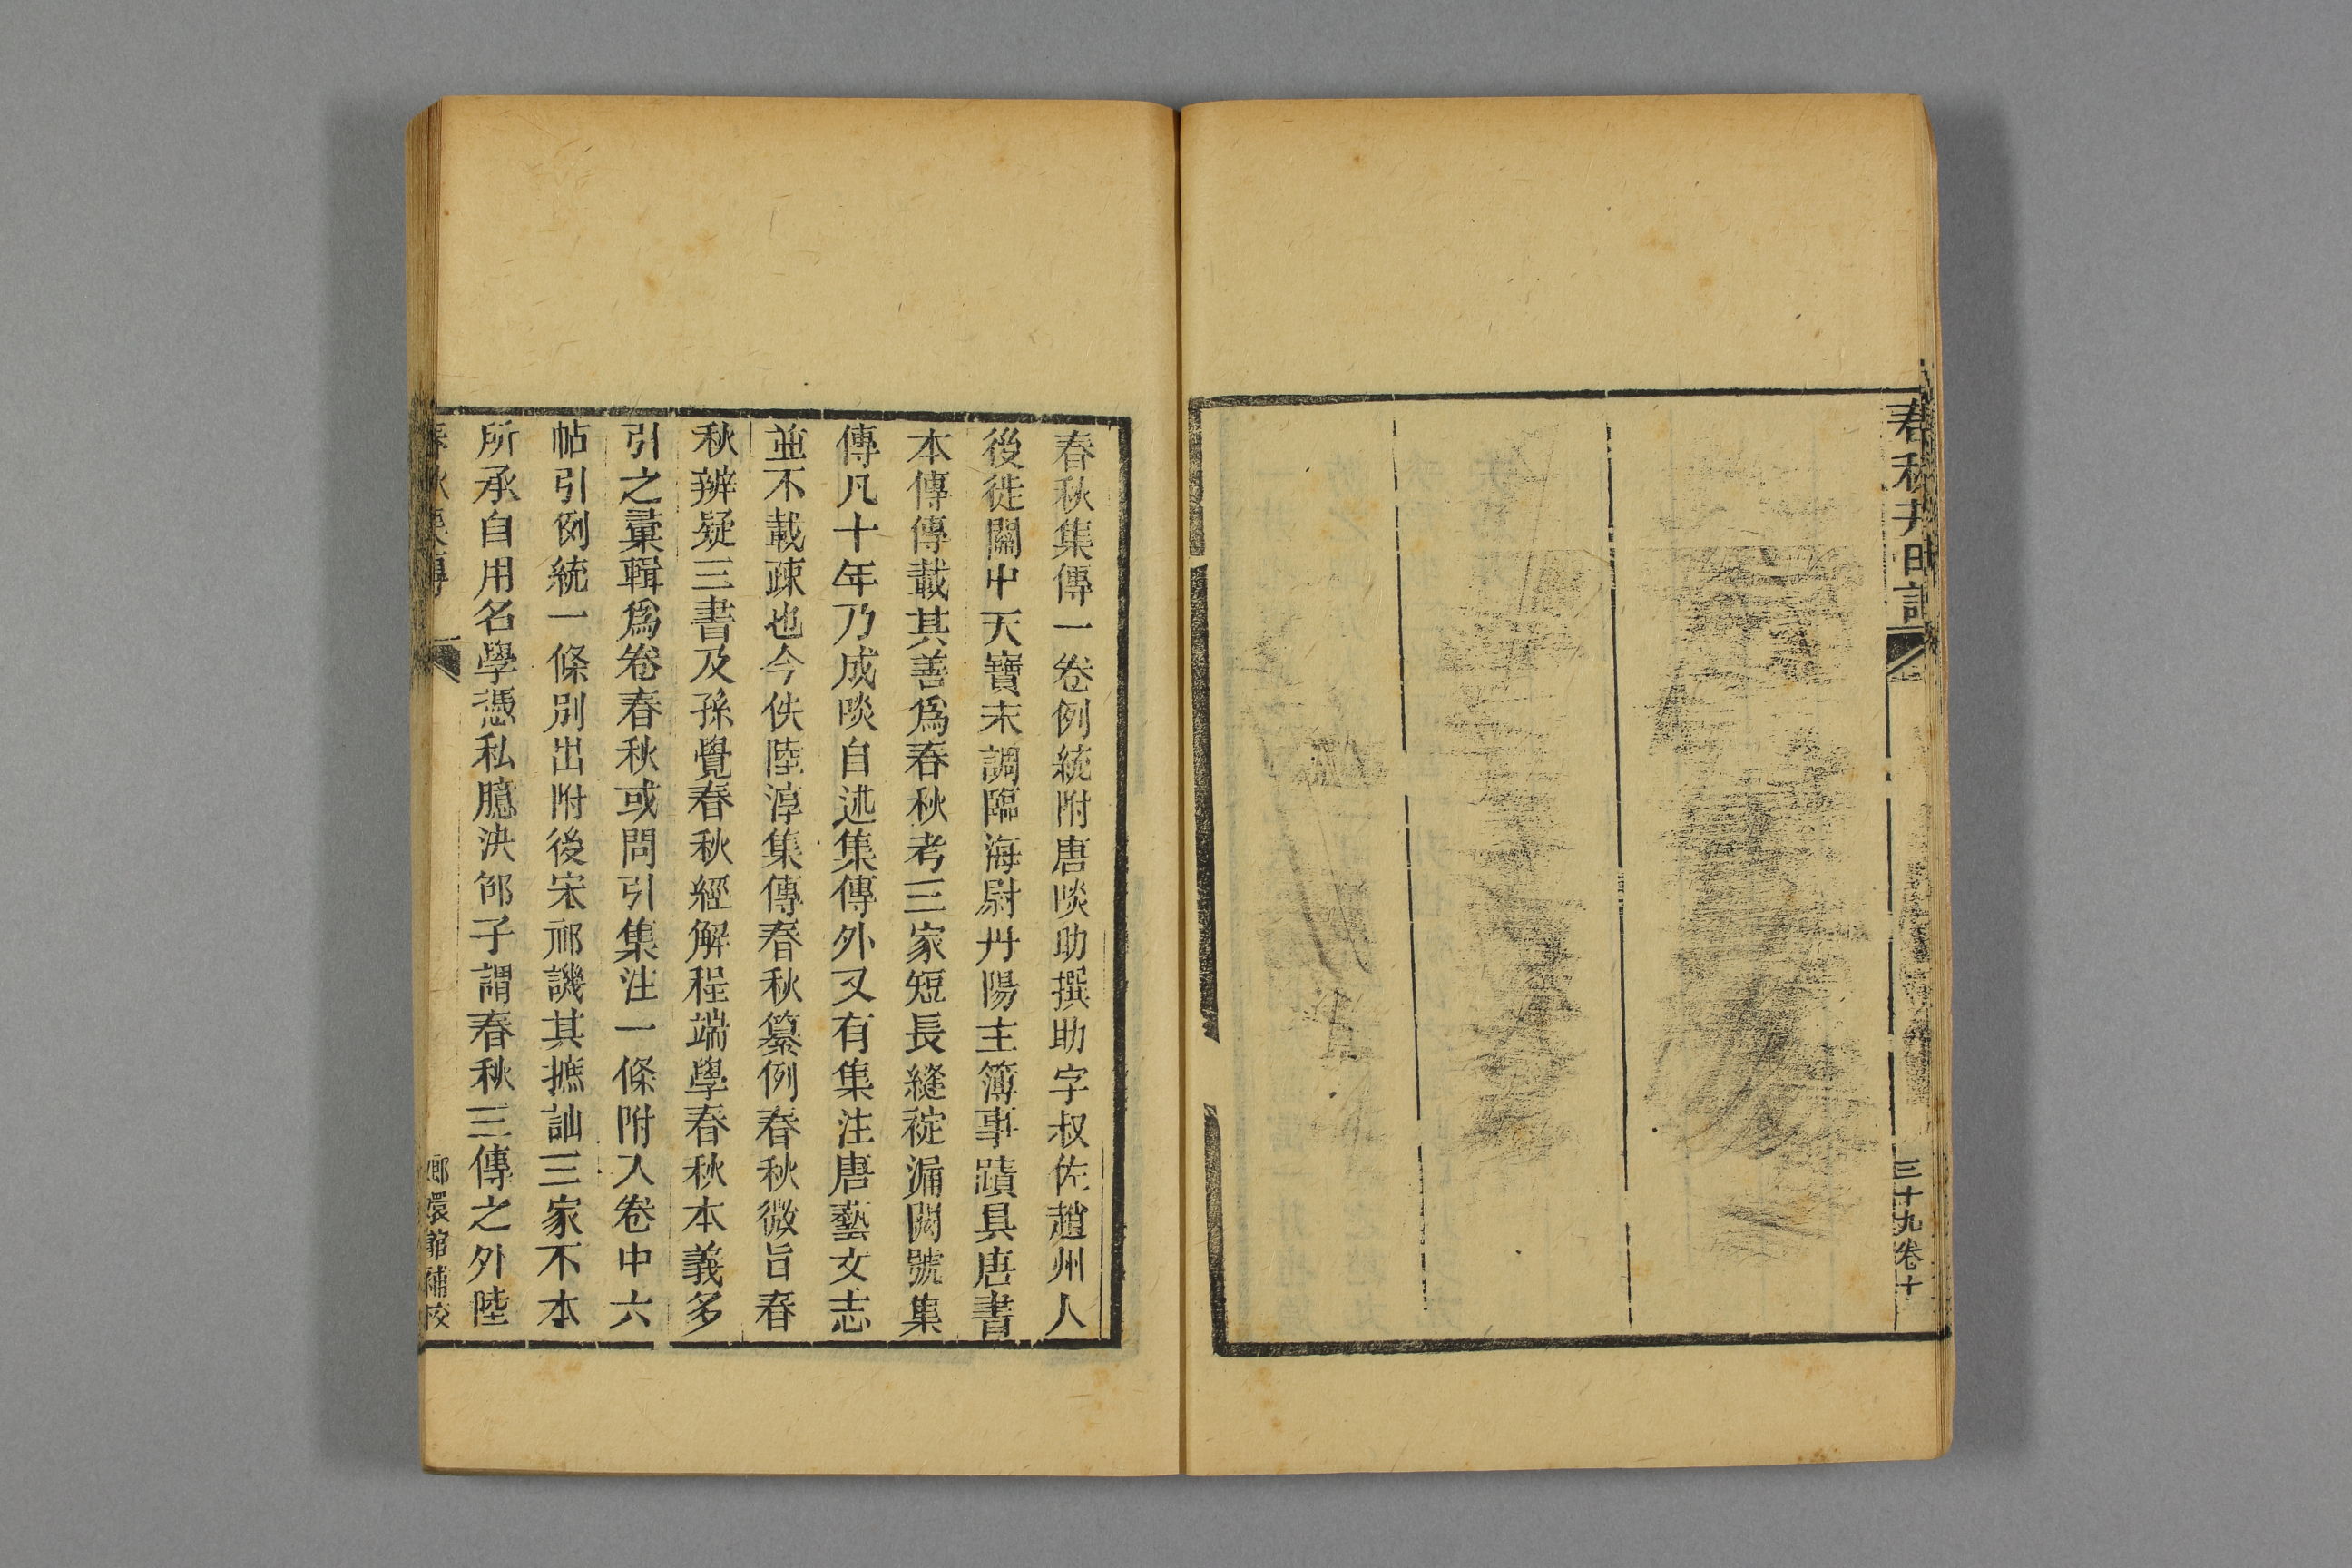 三十九卷十
春秋集傳一卷例統附唐啖助撰助字叔佐趙州人
後徙關中天寶末調臨海尉丹陽主簿事蹟具唐書
本傳傳載其善爲春秋考三家短長縫綻漏闕號集
傳凡十年乃成啖自述集傳外又有集注唐藝文志
並不載疎也今佚陸淳集傳春秋纂例春秋微旨春
秋辨疑三書及孫覺春秋經解程端學春秋本義多
引之彙輯爲卷春秋或問引集注一條附入卷中六
帖引例統一條別出附後宋祁譏其摭訕三家不本
所承自用名學憑私臆決邵子謂春秋三傳之外陸
春秋集傳
嫏嬛館補校